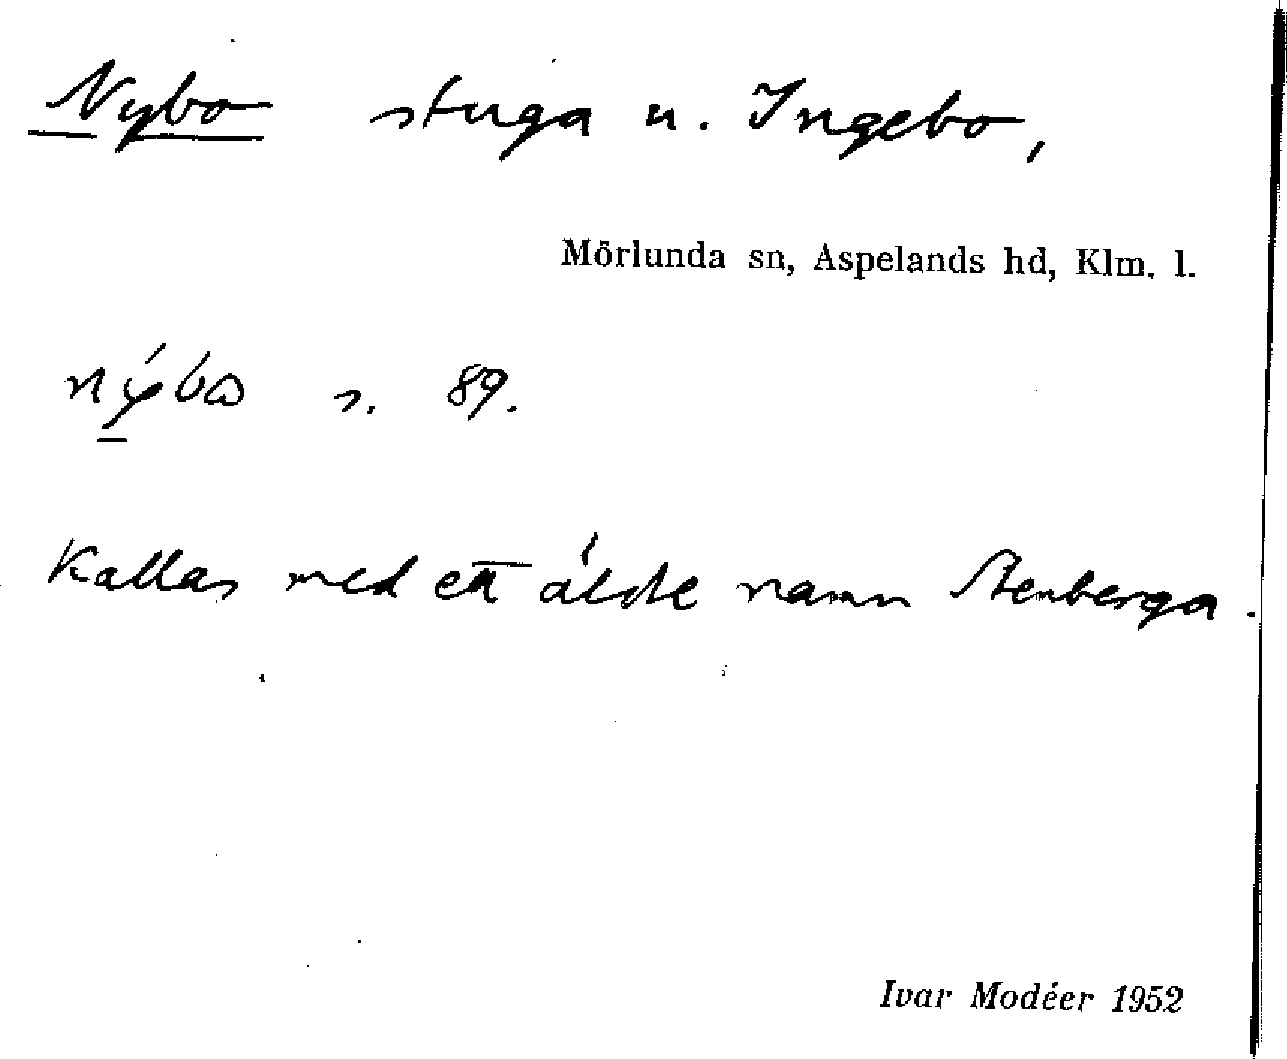 Nybo stuga u. Ingebo,
Mörlunda sn, Aspelands hd, Klm. l.
s. 89.
Kallas med ett äldre namn Stenberga.
Ivar Modéer 1952